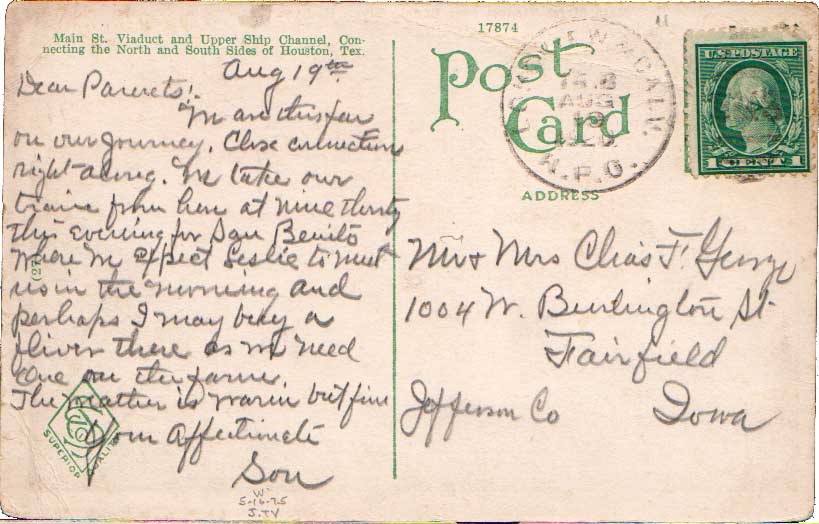 Main St. Viaduct and Upper Ship Channel, Con-
necting the North and South Sides of Houston, Tex.
Aug 19th
Dear Parents!
We are thus far
on our Journey. Close connection
right along. We take our
train from here at nine thirty
this Evening for San Benito
where we Expect Leslie to meet
us in the morning and
perhaps I may buy a
flivver there as we need
one on the farm.
The weather is warm but fine
Your Affectionate
Son
W-
5-16-75
J.TV
(27)
SUPERIOR QUALITY
17874
Post
Card
ADDRESS
AUG
19
R.P.O.
U.S. POSTAGE
1 CENT 1
Mr & Mrs Chas F. George
1004 W. Burlington St
Fairfield
Jefferson Co Iowa